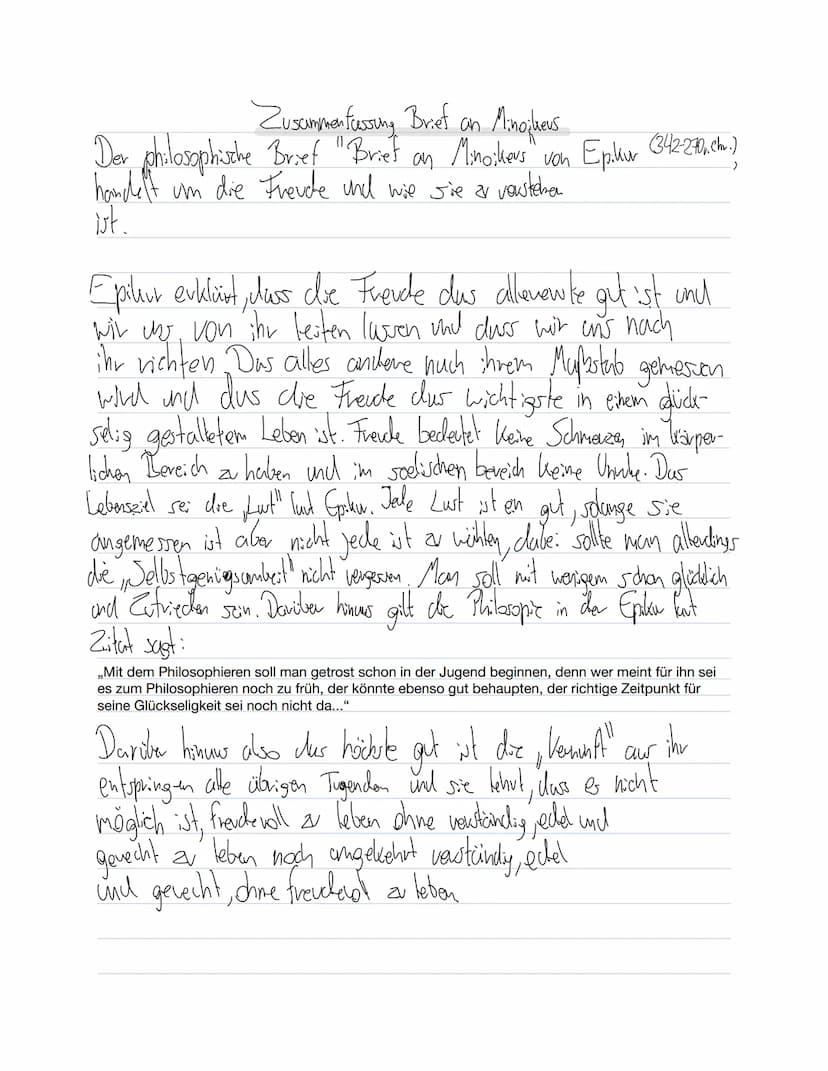 Zusammenfassung Brief an Minoikeus
Der philosophische Brief "Brief an Minoikeus" von Epikur (342-270v.Chr.),
handelt um die Freude und wie sie zu verstehen
ist.
Epikur erklärt, dass die Freude das allererste gut ist und
wir uns von ihr leiten lassen und dass wir uns nach
ihr richten. Das alles andere nach ihrem Maßstab gemessen
wird und das die Freude das wichtigste in einem glück-
selig gestalteten Leben ist. Freude bedeutet keine Schmerzen im körper-
lichen Bereich zu haben und im seelischen bereich keine Unruhe. Das
Lebensziel sei die „Lust" laut Epikur. Jede Lust ist ein gut, solange sie
angemessen ist aber nicht jede ist zu wählen, dabei sollte man allerdings
die „Selbstgenügsamkeit" nicht vergessen. Man soll mit wenigem schon glücklich
und Zufrieden sein. Darüber hinaus gilt die Philosopie in der Epikur laut
Zitat sagt:
„Mit dem Philosophieren soll man getrost schon in der Jugend beginnen, denn wer meint für ihn sei
es zum Philosophieren noch zu früh, der könnte ebenso gut behaupten, der richtige Zeitpunkt für
seine Glückseligkeit sei noch nicht da..."
Darüber hinaus also das höchste gut ist die „Vernunft" aus ihr
entspringen alle übrigen Tugenden und sie lehrt, dass es nicht
möglich ist, freudevoll zu leben ohne verständig, edel und
gerecht zu leben noch umgekehrt verständig, edel
und gerecht, ohne freudevoll zu leben